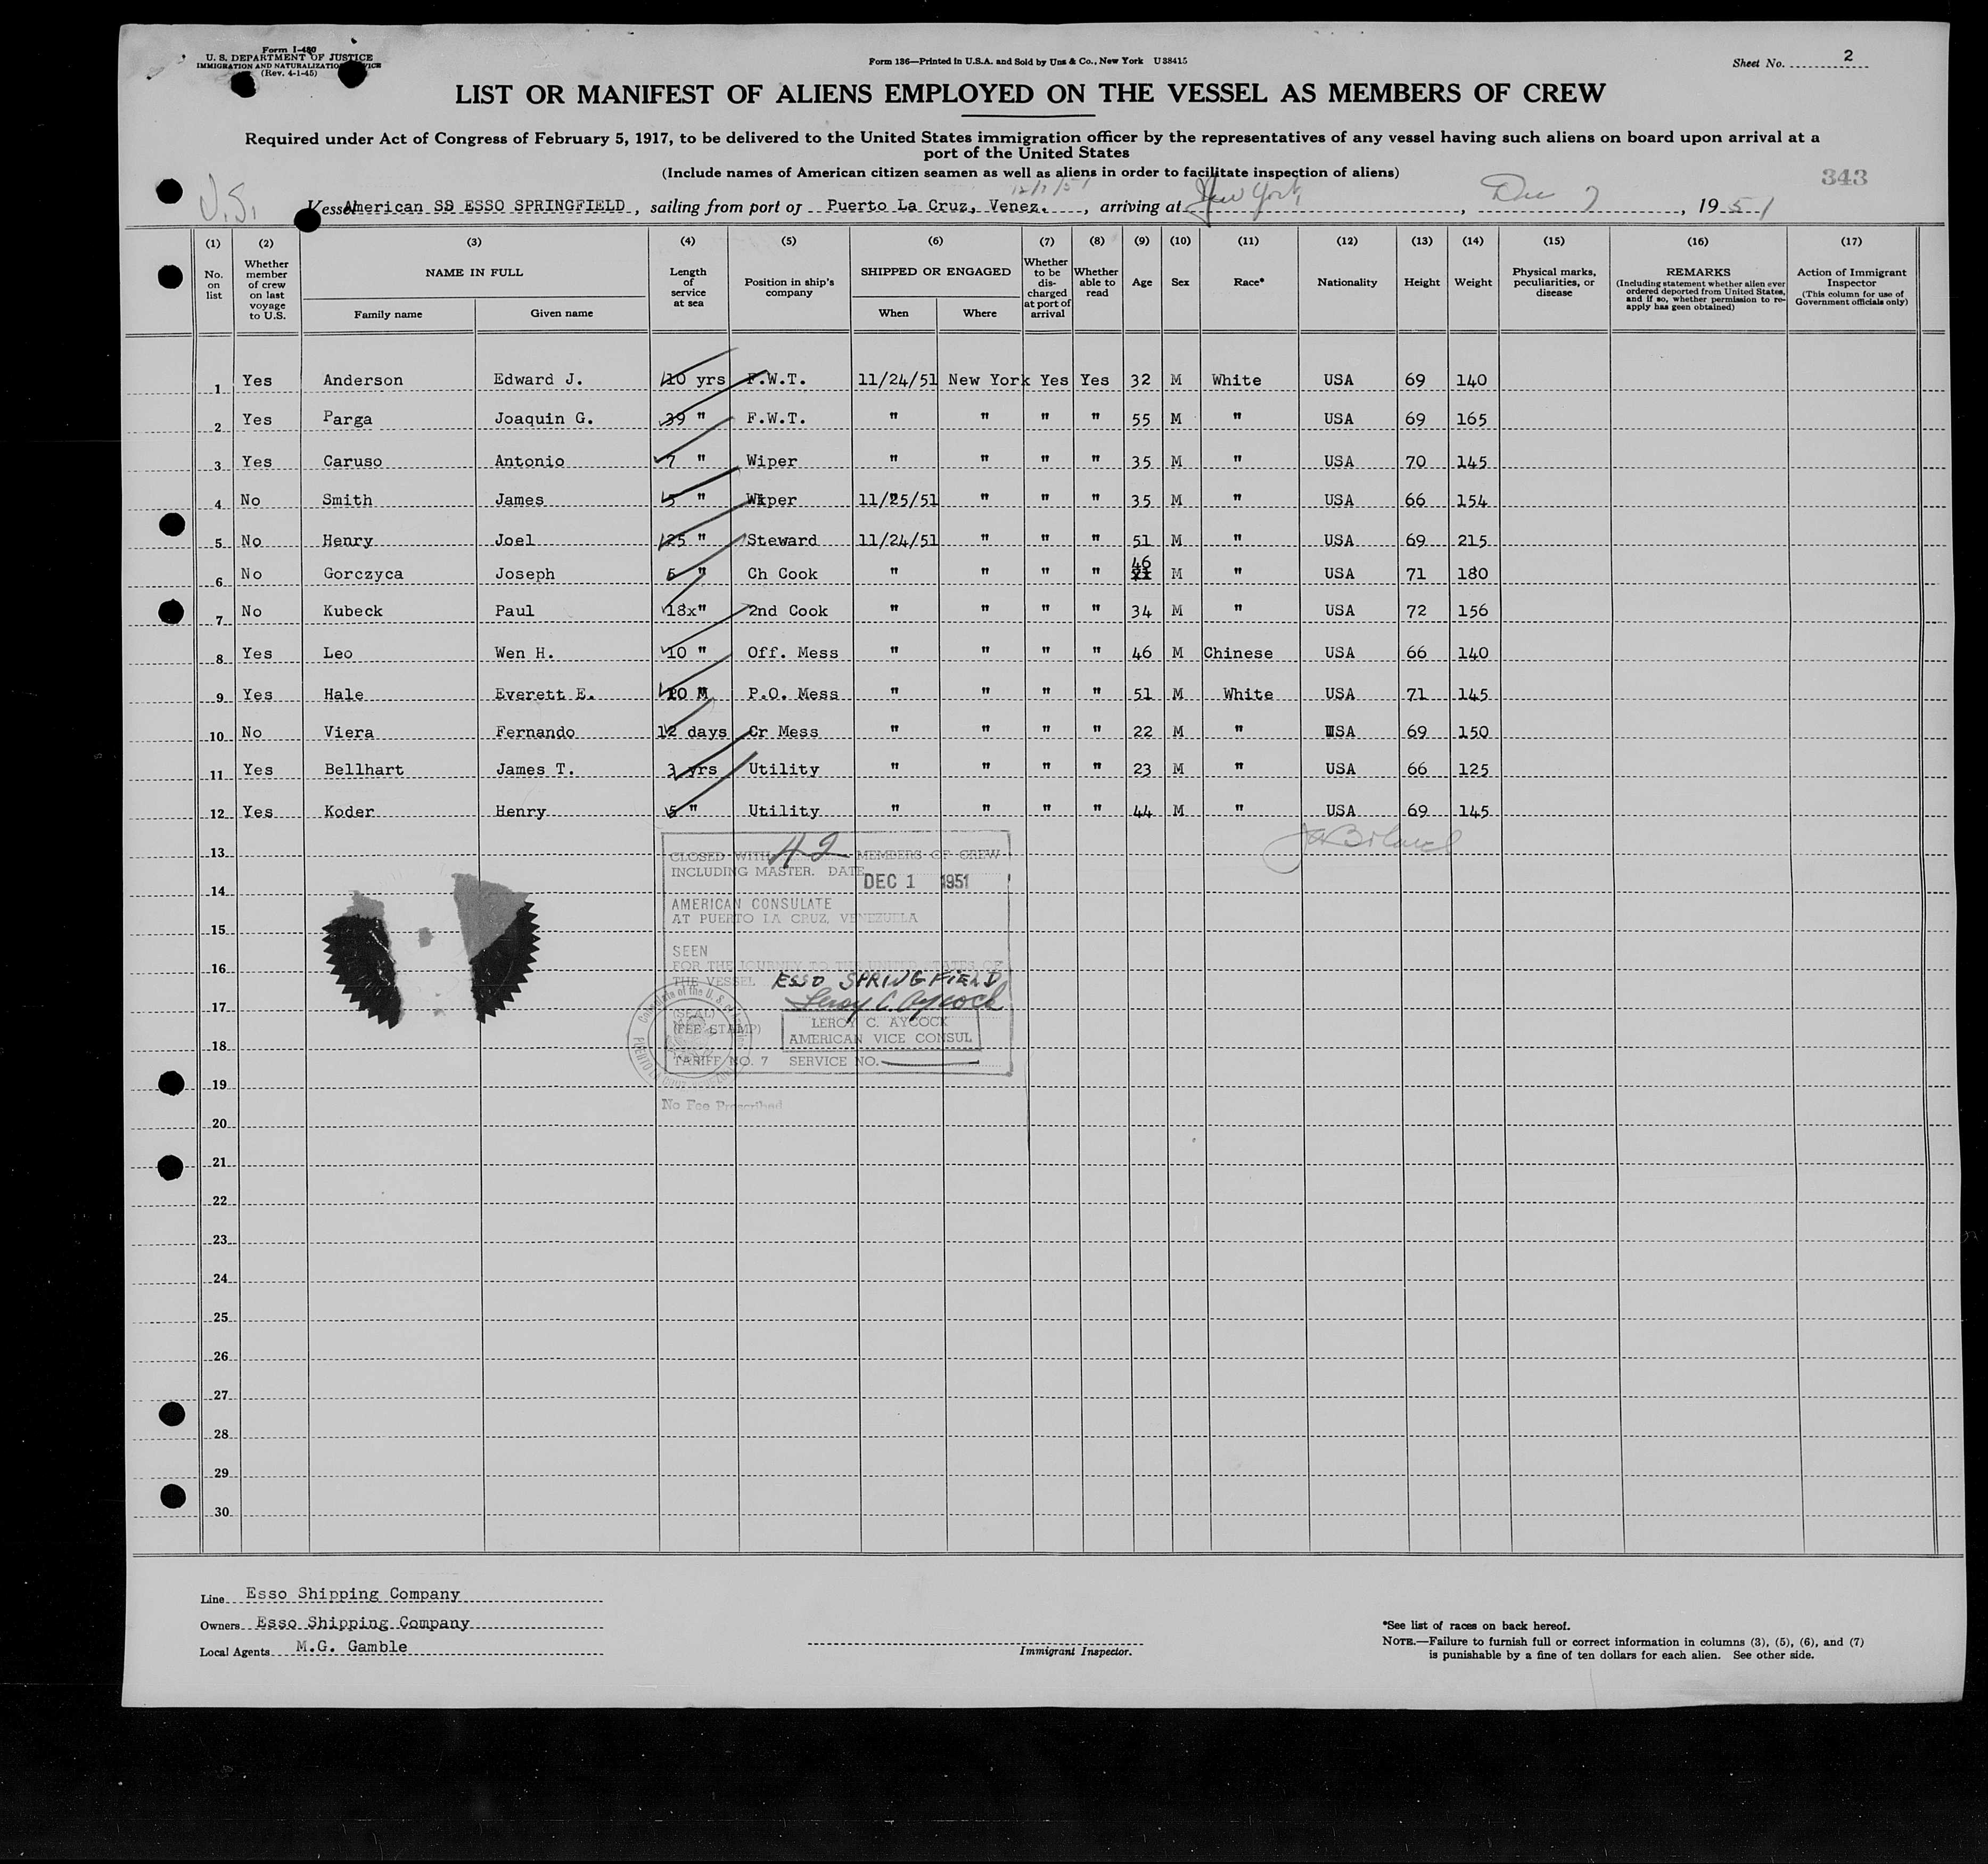 Form I-480
U. S. DEPARTMENT OF JUSTICE
IMMIGRATION AND NATURALIZATION SERVICE
(Rev. 4-1-45)
Form 136—Printed in U.S.A. and Sold by Unz & Co., New York U38415
Sheet No. 2
LIST OR MANIFEST OF ALIENS EMPLOYED ON THE VESSEL AS MEMBERS OF CREW
Required under Act of Congress of February 5, 1917, to be delivered to the United States immigration officer by the representatives of any vessel having such aliens on board upon arrival at a
port of the United States
(Include names of American citizen seamen as well as aliens in order to facilitate inspection of aliens)
343
U.S.
12/1/51
Vessel American SS ESSO SPRINGFIELD, sailing from port of Puerto La Cruz, Venez., arriving at New York, Dec 7, 1951
(1) (2) (3) (4) (5) (6) (7) (8) (9) (10) (11) (12) (13) (14) (15) (16) (17)
No. on list
Whether member of crew on last voyage to U.S.
NAME IN FULL
Family name
Given name
Length of service at sea
Position in ship's company
SHIPPED OR ENGAGED
When
Where
Whether to be discharged at port of arrival
Whether able to read
Age
Sex
Race*
Nationality
Height
Weight
Physical marks, peculiarities, or disease
REMARKS
(Including statement whether alien ever ordered deported from United States, and if so, whether permission to re-apply has geen obtained)
Action of Immigrant Inspector
(This column for use of Government officials only)
1 Yes Anderson Edward J. 10 yrs F.W.T. 11/24/51 New York Yes Yes 32 M White USA 69 140
2 Yes Parga Joaquin G. 39 " F.W.T. " " " " 55 M " USA 69 165
3 Yes Caruso Antonio 7 " Wiper " " " " 35 M " USA 70 145
4 No Smith James 5 " Wiper 11/25/51 " " " 35 M " USA 66 154
5 No Henry Joel 25 " Steward 11/24/51 " " " 51 M " USA 69 215
6 No Gorczyca Joseph 5 " Ch Cook " " " " 46 M " USA 71 180
7 No Kubeck Paul 18x" 2nd Cook " " " " 34 M " USA 72 156
8 Yes Leo Wen H. 10 " Off. Mess " " " " 46 M Chinese USA 66 140
9 Yes Hale Everett E. 10 M P.O. Mess " " " " 51 M White USA 71 145
10 No Viera Fernando 12 days Cr Mess " " " " 22 M " USA 69 150
11 Yes Bellhart James T. 3 yrs Utility " " " " 23 M " USA 66 125
12 Yes Koder Henry 5 " Utility " " " " 44 M " USA 69 145
13
14
15
16
17
18
19
20
21
22
23
24
25
26
27
28
29
30
CLOSED WITH 42 MEMBERS OF CREW
INCLUDING MASTER. DATE DEC 1 1951
AMERICAN CONSULATE
AT PUERTO LA CRUZ, VENEZUELA
SEEN
FOR THE JOURNEY TO THE UNITED STATES OF
THE VESSEL ESSO SPRINGFIELD
Leroy C. Aycock
(SEAL)
(FEE STAMP)
LEROY C. AYCOCK
AMERICAN VICE CONSUL
TARIFF NO. 7 SERVICE NO.
No Fee Prescribed
Line Esso Shipping Company
Owners Esso Shipping Company
Local Agents M.G. Gamble
Immigrant Inspector.
*See list of races on back hereof.
NOTE.—Failure to furnish full or correct information in columns (3), (5), (6), and (7)
is punishable by a fine of ten dollars for each alien. See other side.